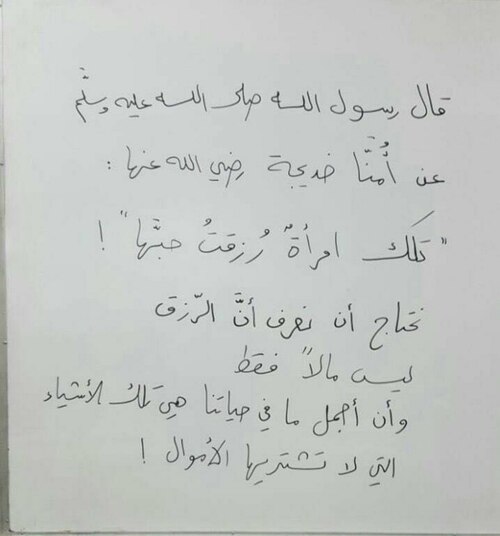 قال رسول الله صلى الله عليه وسلَّم
عن أُمِّنَّا خديجة رضي الله عنها :
"تلك امرأةٌ رُزقتُ حبَّها" !
نحتاج أن نعرف أنَّ الرِّزق
ليس مالاً فقط
وأن أجمل ما في حياتنا هي تلك الأشياء
التي لا تشتريها الأموال !